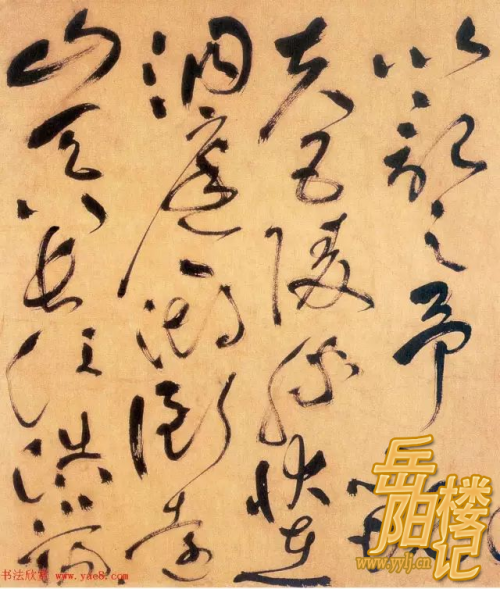 以記之予
夫巴陵勝狀在
洞庭一湖銜遠
山吞長江浩
岳阳楼记
www.yylj.cn
书法欣赏 www.yac8.com